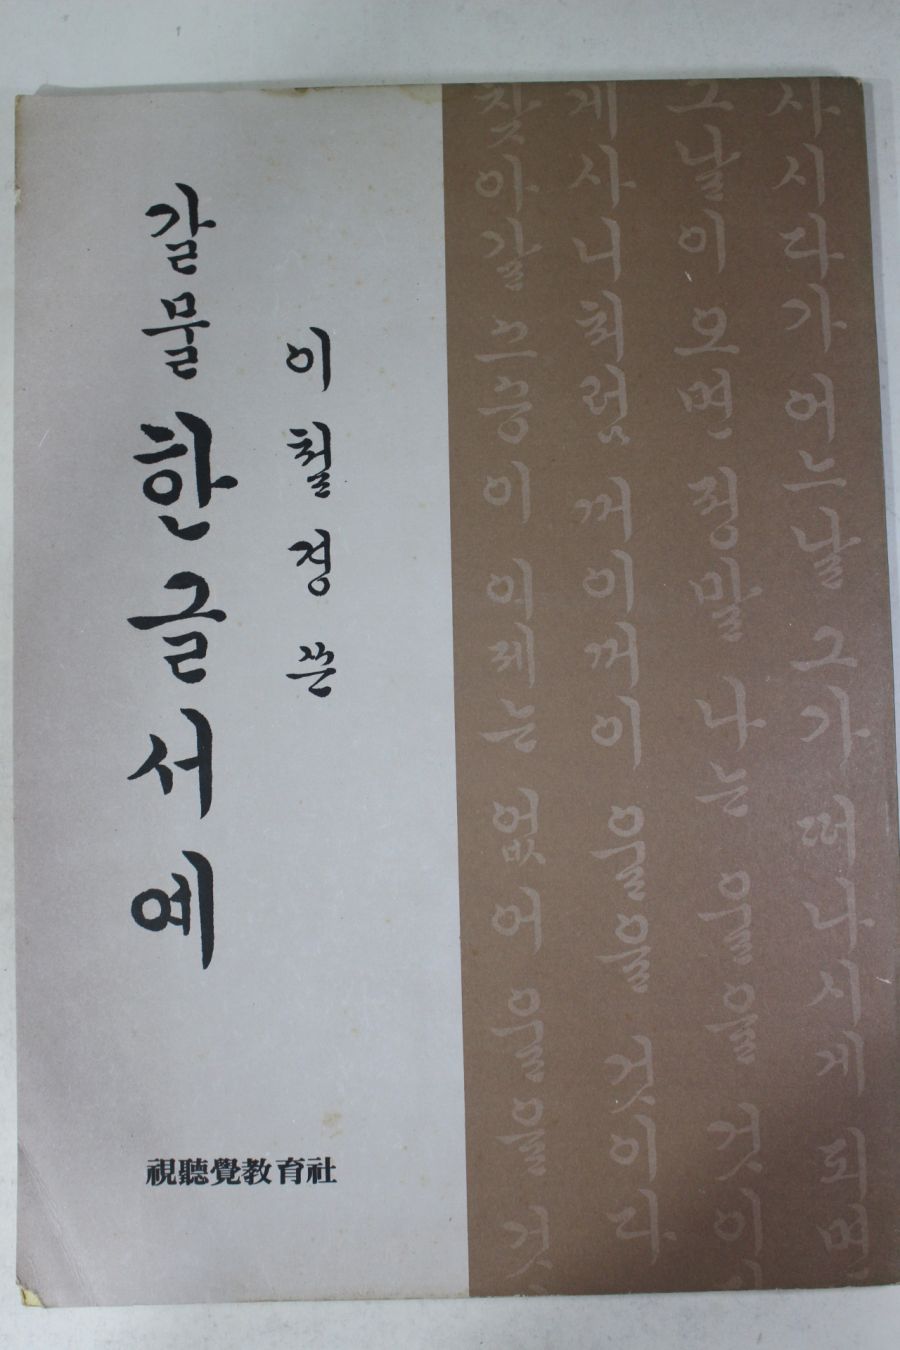 갈물 한글서예
이철경 쓴
視聽覺敎育社
사시다가 어느날 그가 떠나시게 되면
그날이 오면 정말 나는 울을 것이
게 사니처럼 꺼이꺼이 울을 것이다
찾아갈 스승이 이제는 없어 울을 것